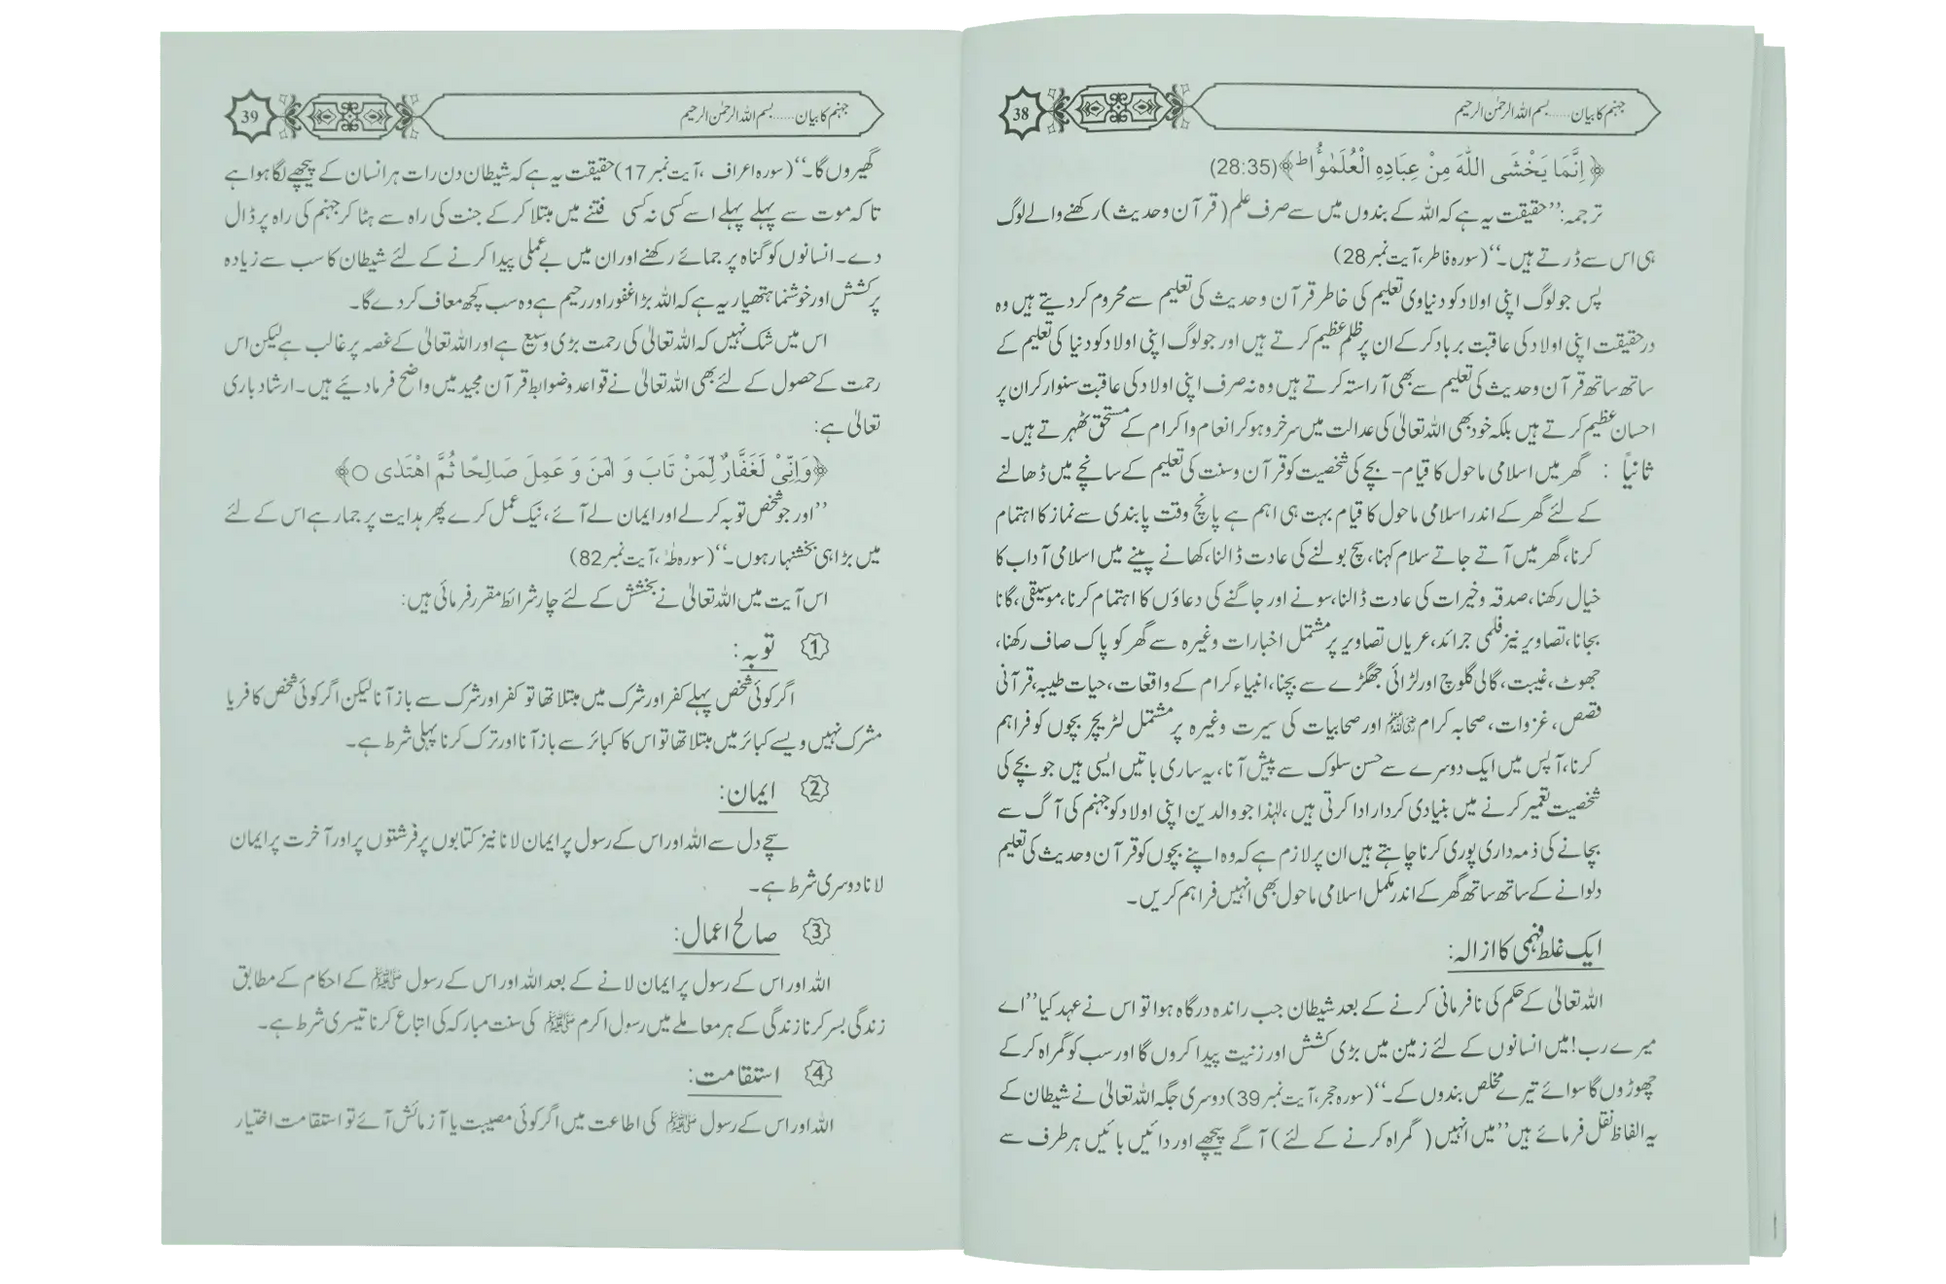 جہنم کا بیان......بسم اللہ الرحمٰن الرحیم
38
﴿ اِنَّمَا یَخْشَی اللّٰہَ مِنْ عِبَادِہِ الْعُلَمٰٓؤُا ط﴾(28:35)
ترجمہ:’’حقیقت یہ ہے کہ اللہ کے بندوں میں سے صرف علم (قرآن وحدیث) رکھنے والے لوگ
ہی اس سے ڈرتے ہیں۔‘‘(سورہ فاطر،آیت نمبر 28)
پس جو لوگ اپنی اولاد کو دنیاوی تعلیم کی خاطر قرآن وحدیث کی تعلیم سے محروم کردیتے ہیں وہ
درحقیقت اپنی اولاد کی عاقبت برباد کرکے ان پر ظلم عظیم کرتے ہیں اور جو لوگ اپنی اولاد کو دنیا کی تعلیم کے
ساتھ ساتھ قرآن وحدیث کی تعلیم سے بھی آراستہ کرتے ہیں وہ نہ صرف اپنی اولاد کی عاقبت سنوار کر ان پر
احسان عظیم کرتے ہیں بلکہ خود بھی اللہ تعالیٰ کی عدالت میں سرخرو ہوکر انعام واکرام کے مستحق ٹھہرتے ہیں۔
ثانیاً : گھر میں اسلامی ماحول کا قیام- بچے کی شخصیت کو قرآن وسنت کی تعلیم کے سانچے میں ڈھالنے
کے لئے گھر کے اندر اسلامی ماحول کا قیام بہت ہی اہم ہے پانچ وقت پابندی سے نماز کا اہتمام
کرنا،گھر میں آتے جاتے سلام کہنا،سچ بولنے کی عادت ڈالنا،کھانے پینے میں اسلامی آداب کا
خیال رکھنا،صدقہ وخیرات کی عادت ڈالنا،سونے اور جاگنے کی دعاؤں کا اہتمام کرنا،موسیقی،گانا
بجانا،تصاویر نیز فلمی جرائد،عریاں تصاویر پر مشتمل اخبارات وغیرہ سے گھر کو پاک صاف رکھنا،
جھوٹ،غیبت،گالی گلوچ اور لڑائی جھگڑے سے بچنا،انبیاء کرام کے واقعات،حیات طیبہ،قرآنی
قصص،غزوات،صحابہ کرام ﷺ اور صحابیات کی سیرت وغیرہ پر مشتمل لٹریچر بچوں کو فراہم
کرنا،آپس میں ایک دوسرے سے حسن سلوک سے پیش آنا،یہ ساری باتیں ایسی ہیں جو بچے کی
شخصیت تعمیر کرنے میں بنیادی کردار ادا کرتی ہیں،لہٰذا جو والدین اپنی اولاد کو جہنم کی آگ سے
بچانے کی ذمہ داری پوری کرنا چاہتے ہیں ان پر لازم ہے کہ وہ اپنے بچوں کو قرآن وحدیث کی تعلیم
دلوانے کے ساتھ ساتھ گھر کے اندر مکمل اسلامی ماحول بھی انہیں فراہم کریں۔
ایک غلط فہمی کا ازالہ:
اللہ تعالیٰ کے حکم کی نافرمانی کرنے کے بعد شیطان جب راندہ درگاہ ہوا تو اس نے عہد کیا’’اے
میرے رب! میں انسانوں کے لئے زمین میں بڑی کشش اور زینت پیدا کروں گا اور سب کو گمراہ کرکے
چھوڑوں گا سوائے تیرے مخلص بندوں کے۔‘‘(سورہ حجر،آیت نمبر 39)دوسری جگہ اللہ تعالیٰ نے شیطان کے
یہ الفاظ نقل فرمائے ہیں’’میں انہیں (گمراہ کرنے کے لئے) آگے پیچھے اور دائیں بائیں ہر طرف سے
جہنم کا بیان......بسم اللہ الرحمٰن الرحیم
39
گھیروں گا۔‘‘(سورہ اعراف ،آیت نمبر 17)حقیقت یہ ہے کہ شیطان دن رات ہر انسان کے پیچھے لگا ہوا ہے
تاکہ موت سے پہلے پہلے اسے کسی نہ کسی فتنے میں مبتلا کرکے جنت کی راہ سے ہٹا کر جہنم کی راہ پر ڈال
دے۔انسانوں کو گناہ پر جمائے رکھنے اور ان میں بے عملی پیدا کرنے کے لئے شیطان کا سب سے زیادہ
پرکشش اور خوشنما ہتھیار یہ ہے کہ اللہ بڑا غفور اور رحیم ہے وہ سب کچھ معاف کردے گا۔
اس میں شک نہیں کہ اللہ تعالیٰ کی رحمت بڑی وسیع ہے اور اللہ تعالیٰ کے غصہ پر غالب ہے لیکن اس
رحمت کے حصول کے لئے بھی اللہ تعالیٰ نے قواعد وضوابط قرآن مجید میں واضح فرمادئیے ہیں۔ارشاد باری
تعالیٰ ہے:
﴿وَاِنِّیْ لَغَفَّارٌ لِّمَنْ تَابَ وَ اٰمَنَ وَ عَمِلَ صَالِحًا ثُمَّ اھْتَدٰی ○﴾
’’اور جو شخص توبہ کرلے اور ایمان لے آئے،نیک عمل کرے پھر ہدایت پر جما رہے اس کے لئے
میں بڑا ہی بخشنہار ہوں۔‘‘(سورہ طٰہٰ،آیت نمبر 82)
اس آیت میں اللہ تعالیٰ نے بخشش کے لئے چار شرائط مقرر فرمائی ہیں:
1 توبہ:
اگر کوئی شخص پہلے کفر اور شرک میں مبتلا تھا تو کفر اور شرک سے باز آنا لیکن اگر کوئی شخص کافر یا
مشرک نہیں ویسے کبائر میں مبتلا تھا تو اس کا کبائر سے باز آنا اور ترک کرنا پہلی شرط ہے۔
2 ایمان:
سچے دل سے اللہ اور اس کے رسول پر ایمان لانا نیز کتابوں پر فرشتوں پر اور آخرت پر ایمان
لانا دوسری شرط ہے۔
3 صالح اعمال:
اللہ اور اس کے رسول پر ایمان لانے کے بعد اللہ اور اس کے رسول ﷺ کے احکام کے مطابق
زندگی بسر کرنا زندگی کے ہر معاملے میں رسول اکرم ﷺ کی سنت مبارکہ کی اتباع کرنا تیسری شرط ہے۔
4 استقامت:
اللہ اور اس کے رسول ﷺ کی اطاعت میں اگر کوئی مصیبت یا آزمائش آئے تو استقامت اختیار